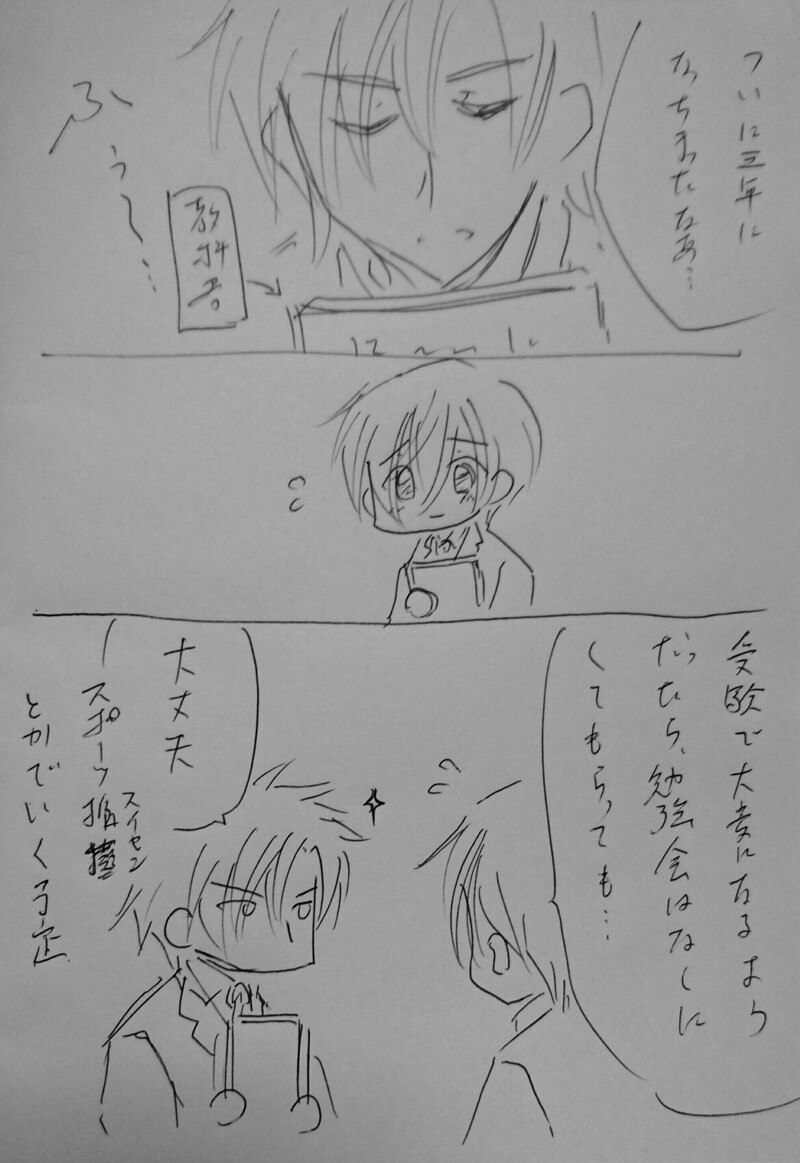 ついに三年に
なっちまったなあ…
ふぅ〜…
教科書
受験で大変になるより
だったら、勉強会はなしに
してもらっても…
大丈夫
スポーツ推薦
スイセン
とかでいく予定